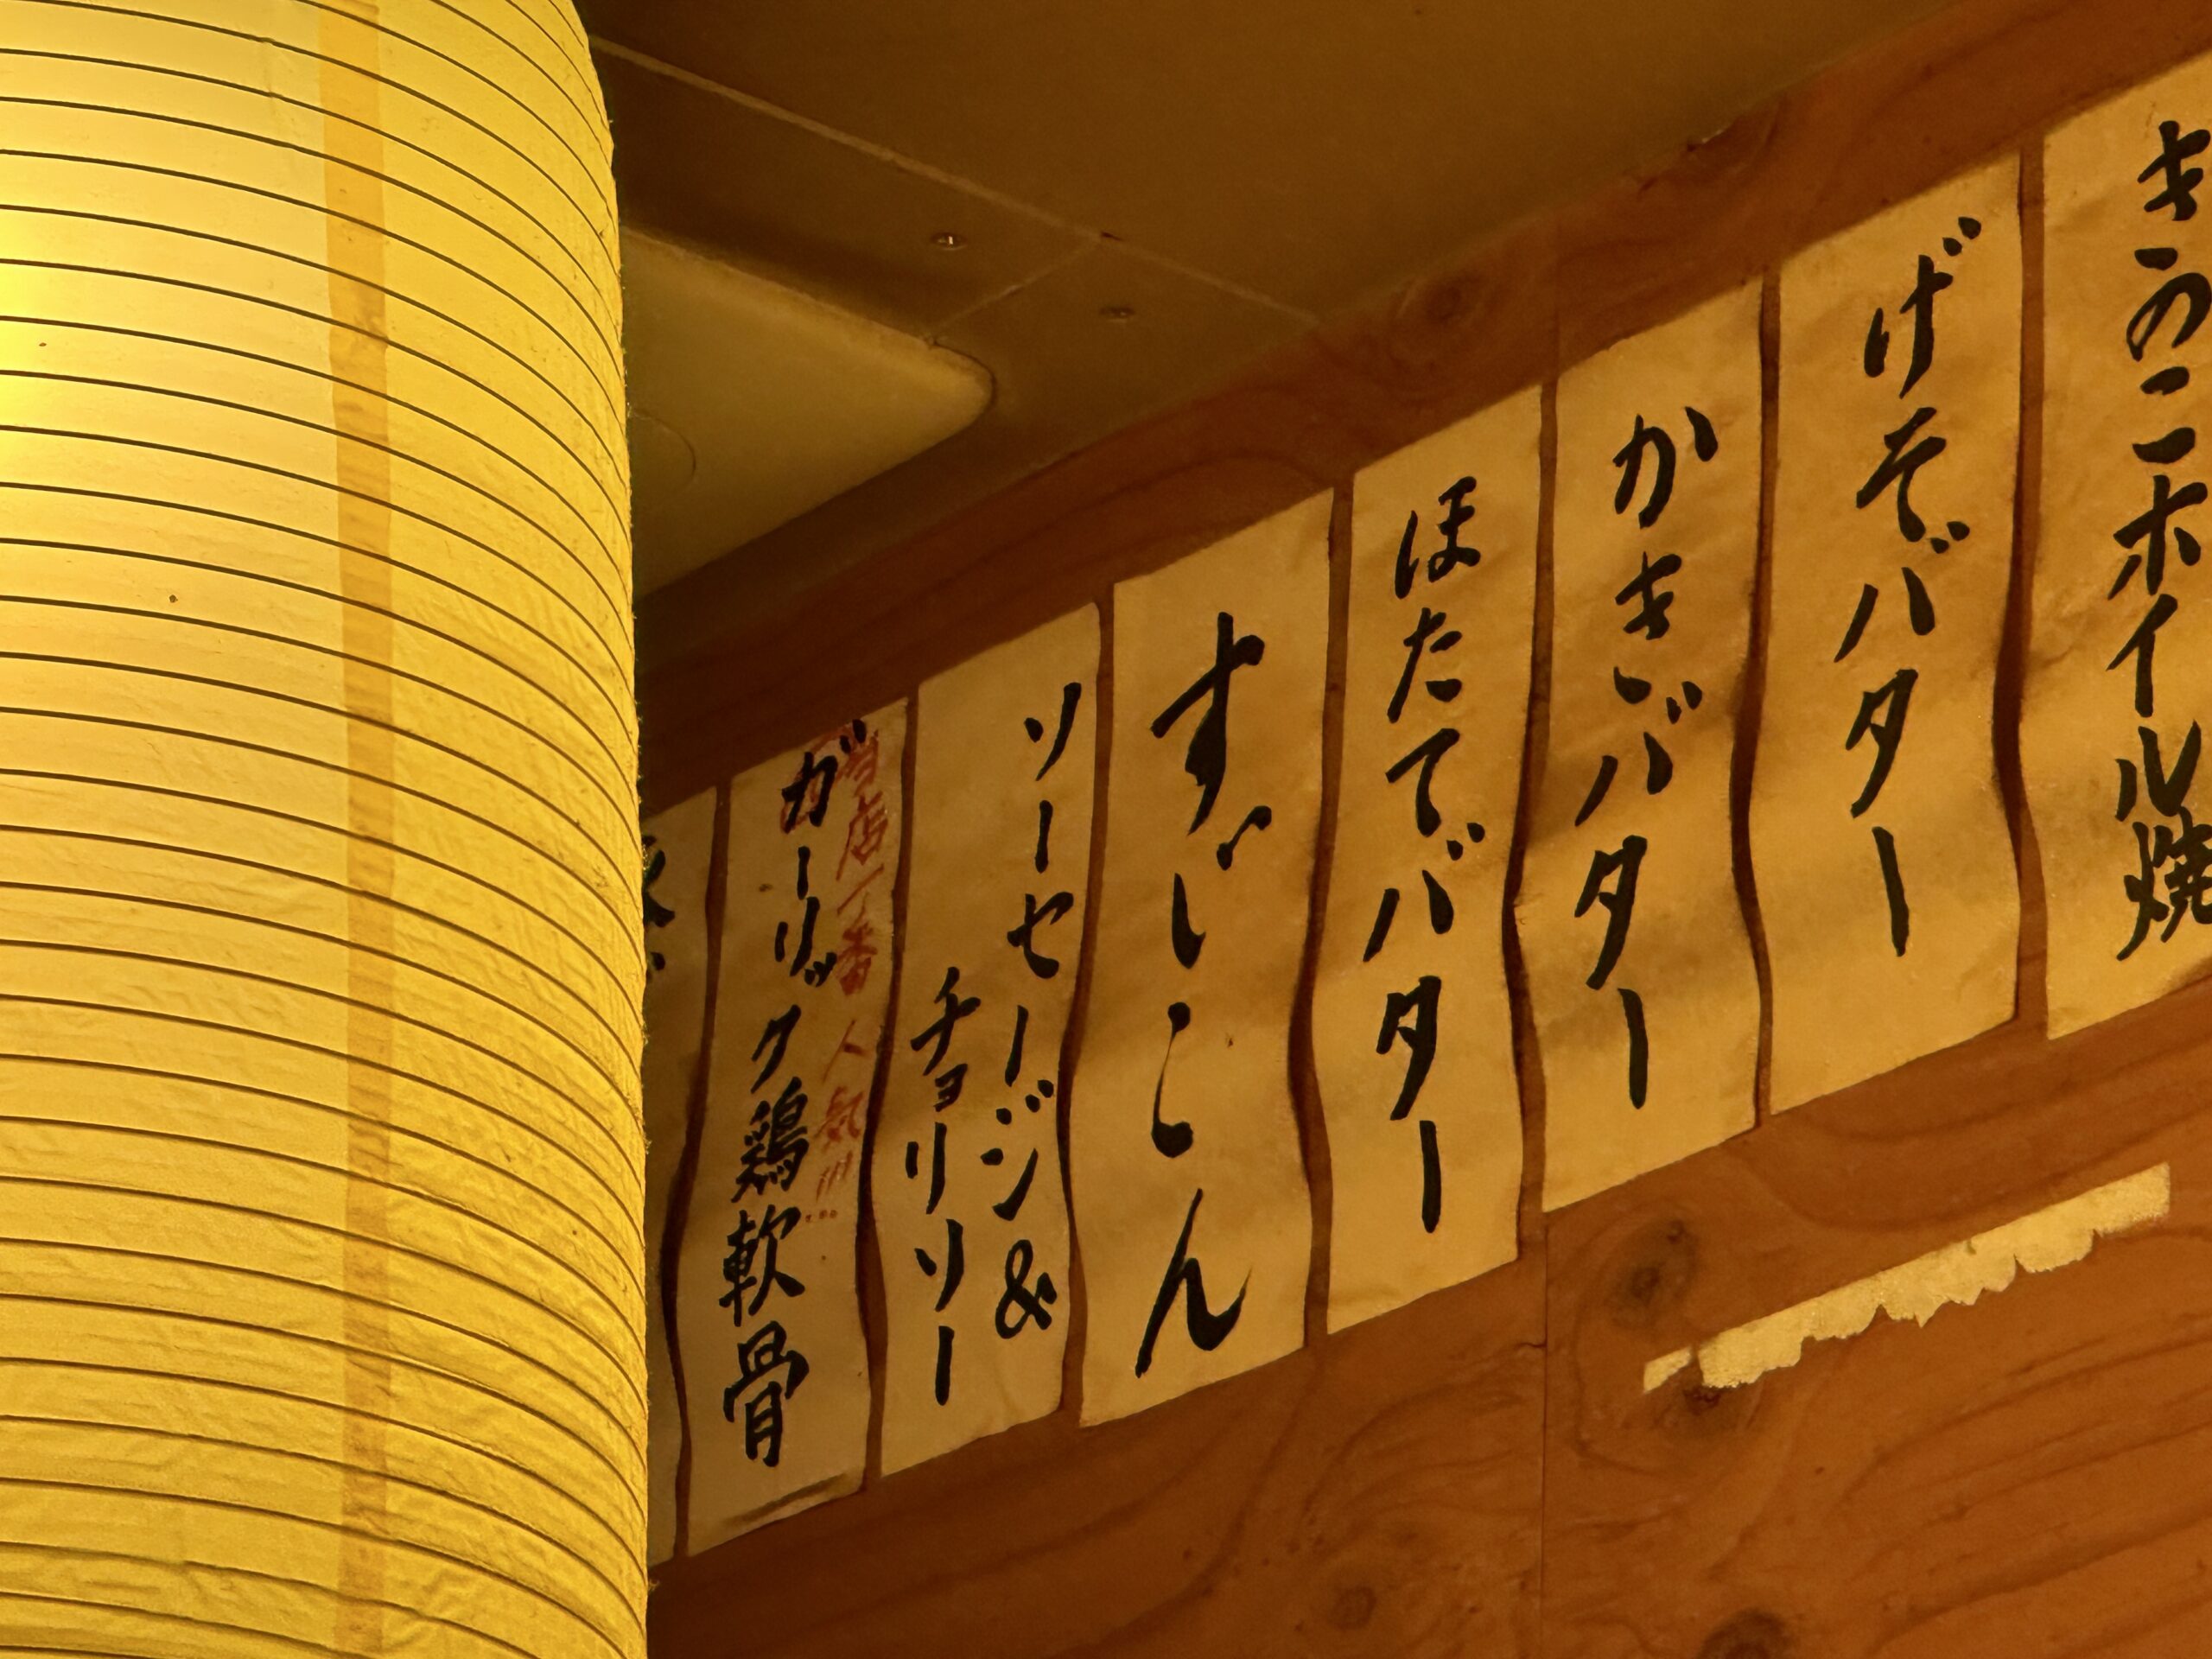 きのこホイル焼
げそバター
かきバター
ほたてバター
ずじこん
ソーセージ&
チョリソー
当店一番人気!!!
ガーリック鶏軟骨